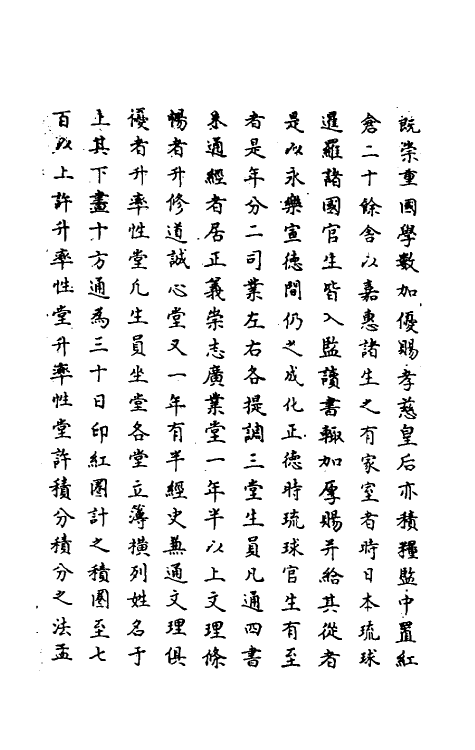 既崇重國學數加優賜孝慈皇后亦積糧監中置紅
倉二十餘舎以嘉惠諸生之有家室者時日本琉球
暹羅諸國官生皆入監讀書輙加厚賜并給其從者
是以永樂宣德間仍之成化正德時琉球官生有至
者是年分二司業左右各提調三堂生員凡通四書
未通經者居正義崇志廣業堂一年半以上文理條
暢者升修道誠心堂又一年有半經史兼通文理俱
優者升率性堂凡生員坐堂各堂立簿横列姓名于
上其下畫十方通為三十日印紅圏計之積圏至七
百以上許升率性堂升率性堂許積分積分之法孟